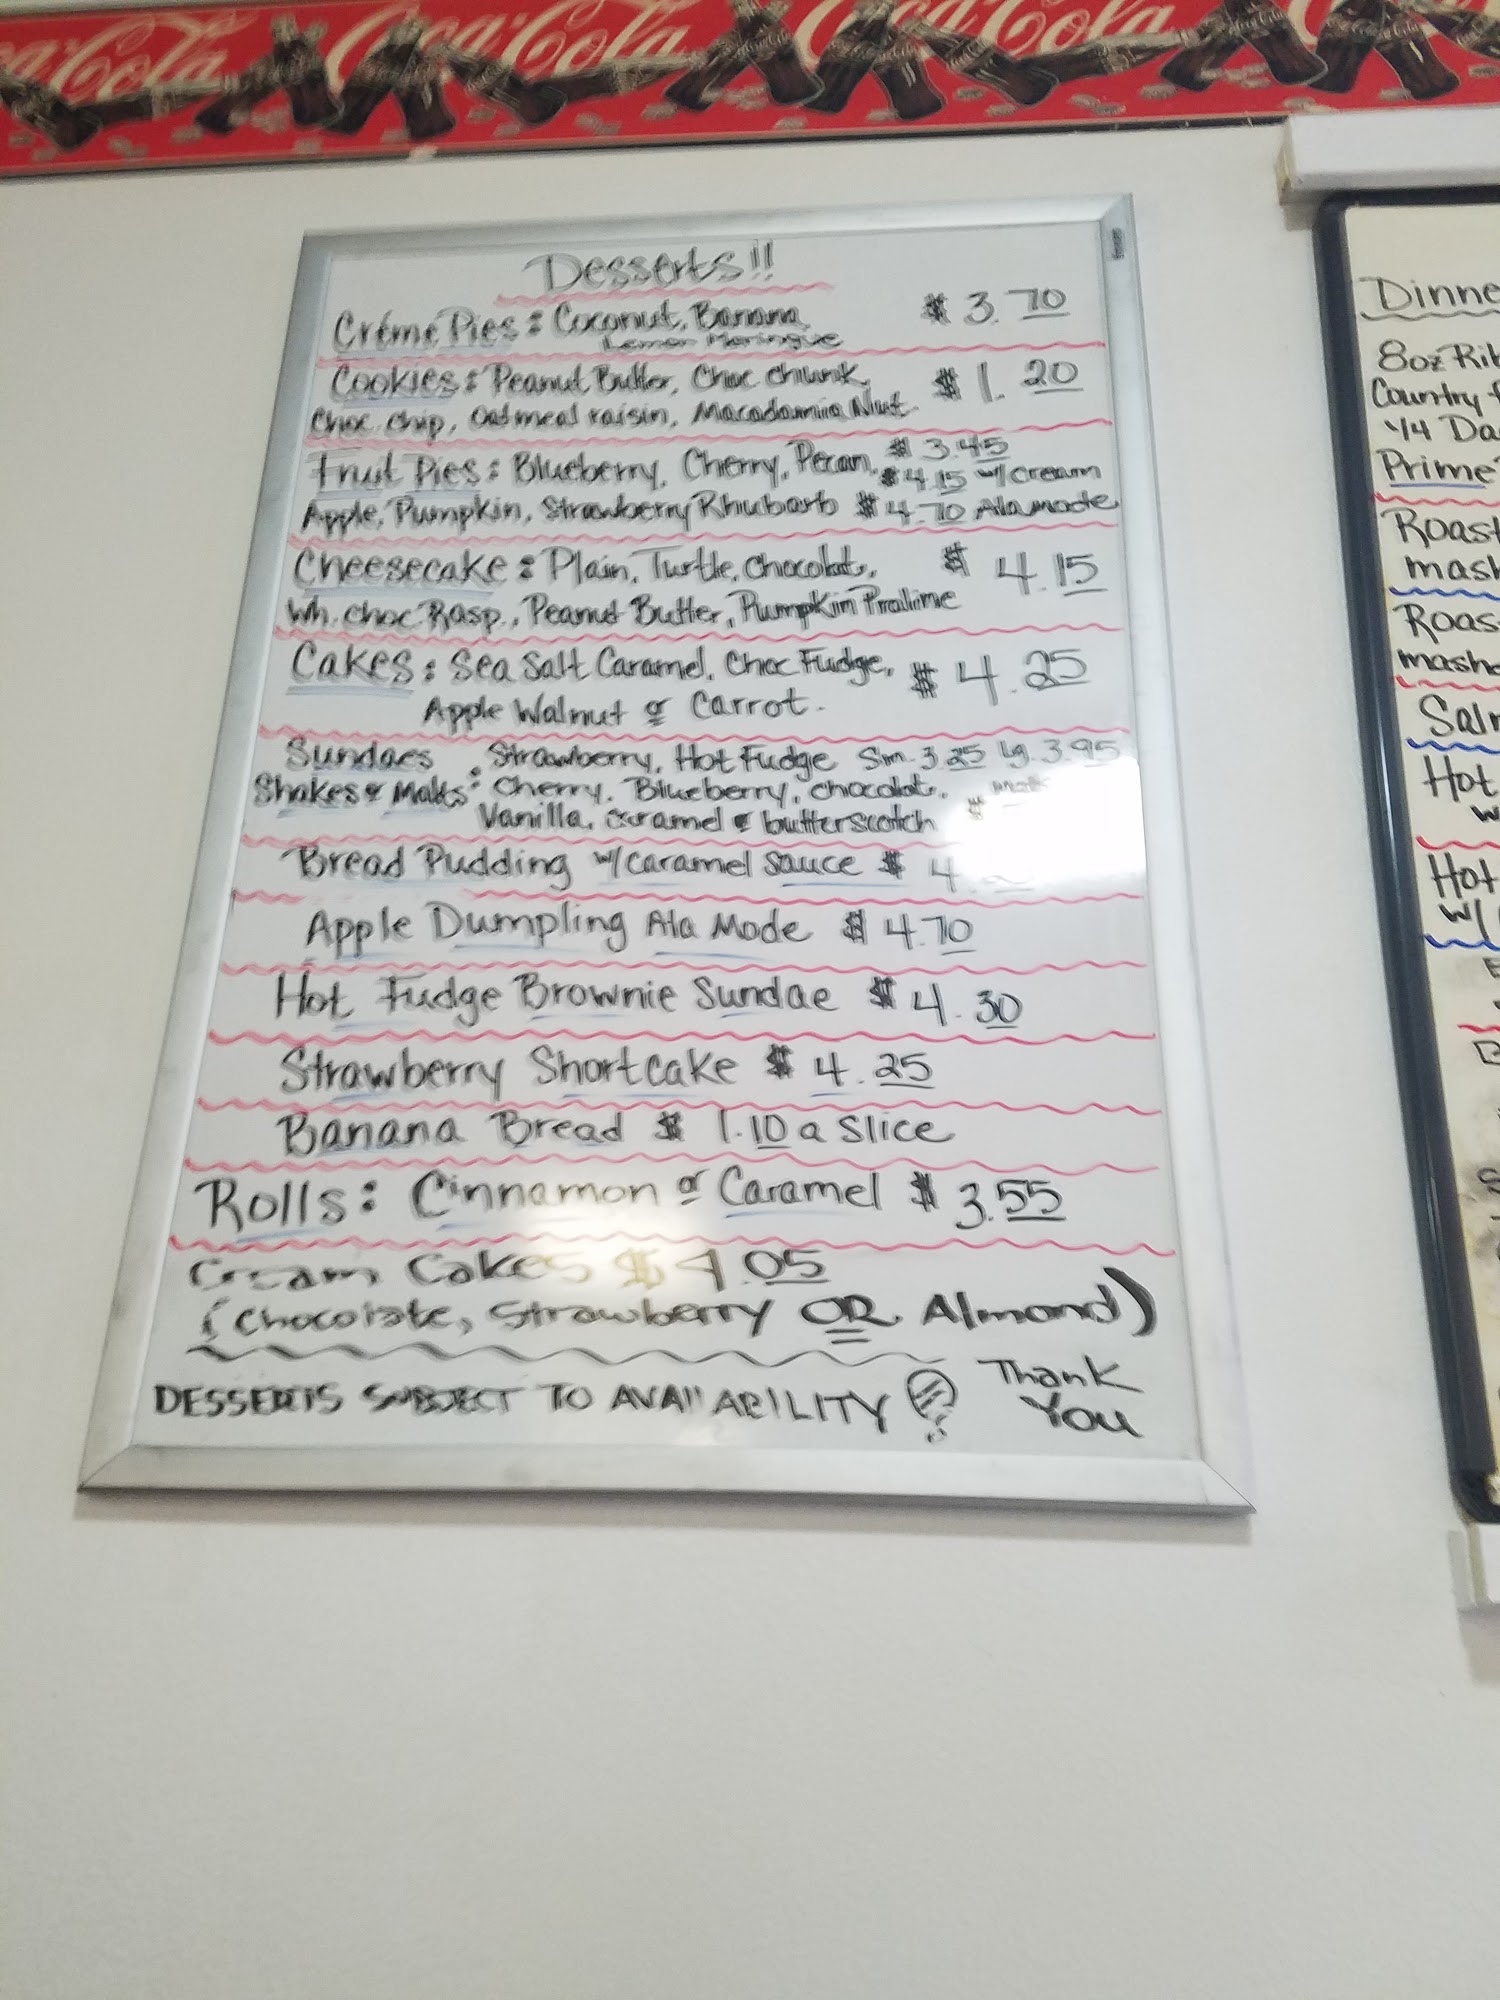 Coca-Cola Coca-Cola Coca-Cola Coca-Cola
Desserts!!
Créme Pies: Coconut, Banana, $3.70
Lemon Meringue
Cookies: Peanut Butter, Choc chunk, $1.20
Choc. chip, Oatmeal raisin, Macadamia Nut
Fruit Pies: Blueberry, Cherry, Pecan, $3.45
$4.15 w/cream
Apple, Pumpkin, Strawberry Rhubarb $4.70 Ala mode
Cheesecake: Plain, Turtle, Chocolat, $4.15
Wh. choc Rasp., Peanut Butter, Pumpkin Praline
Cakes: Sea Salt Caramel, Choc Fudge, $4.25
Apple Walnut or Carrot.
Sundaes : Strawberry, Hot Fudge Sm. 3.25 Lg. 3.95
Shakes & Malts: Cherry, Blueberry, chocolat, malt
Vanilla, caramel & butterscotch $
Bread Pudding w/caramel sauce $4.
Apple Dumpling Ala Mode $4.70
Hot Fudge Brownie Sundae $4.30
Strawberry Shortcake $4.25
Banana Bread $1.10 a slice
Rolls: Cinnamon or Caramel $3.55
Cream Cakes $4.05
(Chocolate, Strawberry OR Almond)
DESSERTS SUBJECT TO AVAILABILITY
Thank
You
Dinne
8oz Rib
Country f
1/4 Da
Prime
Roast
mash
Roas
mashe
Salm
Hot
w
Hot
w/